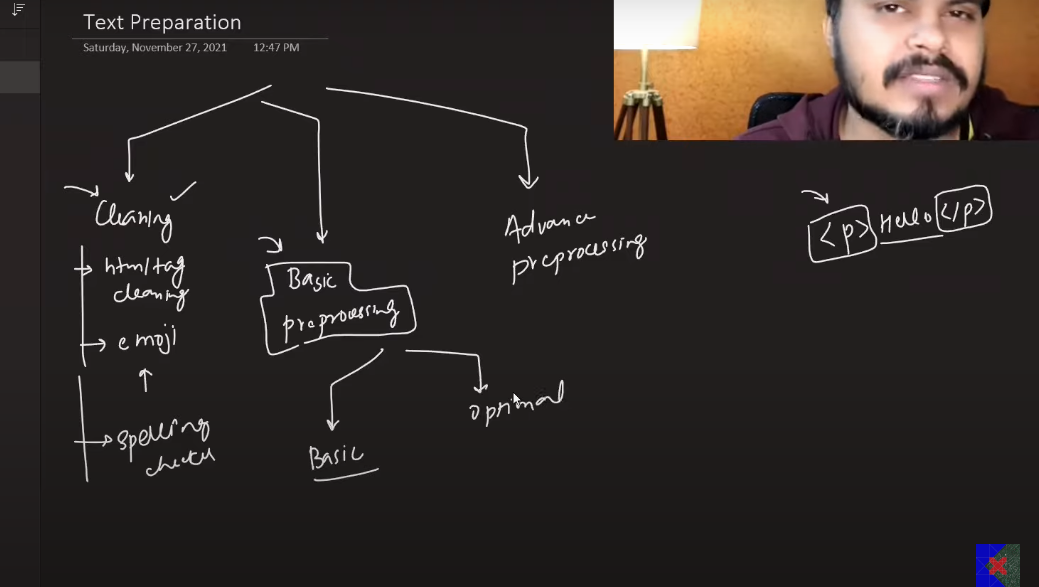 Text Preparation
Saturday, November 27, 2021 12:47 PM
Cleaning
html/tag
cleaning
emoji
spelling
Basic
preprocessing
Basic
Advance
preprocessing
<p> Hello </p>